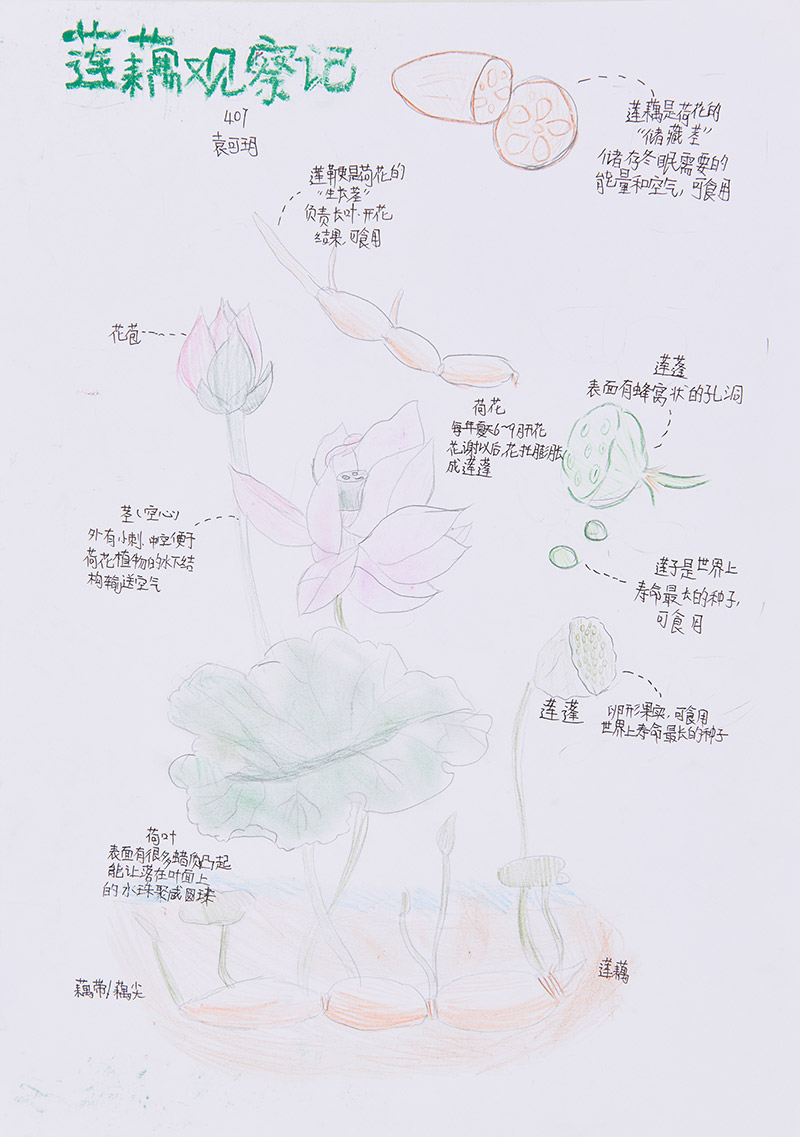 莲藕观察记
407
袁可玥
莲藕是荷花的
“储藏茎”
储存冬眠需要的
能量和空气,可食用
莲鞭是荷花的
“生长茎”
负责长叶·开花
结果,可食用
花苞
莲蓬
表面有蜂窝状的孔洞
荷花
每年夏天6~9月开花
花谢以后,花托膨胀
成莲蓬
茎(空心)
外有小刺.中空便于
荷花植物的水下结
构输送空气
莲子是世界上
寿命最长的种子,
可食用
莲蓬
卵形果实,可食用
世界上寿命最长的种子
荷叶
表面有很多蜡质凸起
能让落在叶面上
的水珠聚成圆球
藕带/藕尖
莲藕